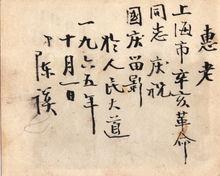 惠老
上海市辛亥革命
同志庆祝
国庆留影
於人民大道
一九六五年
十月一日
陈溪